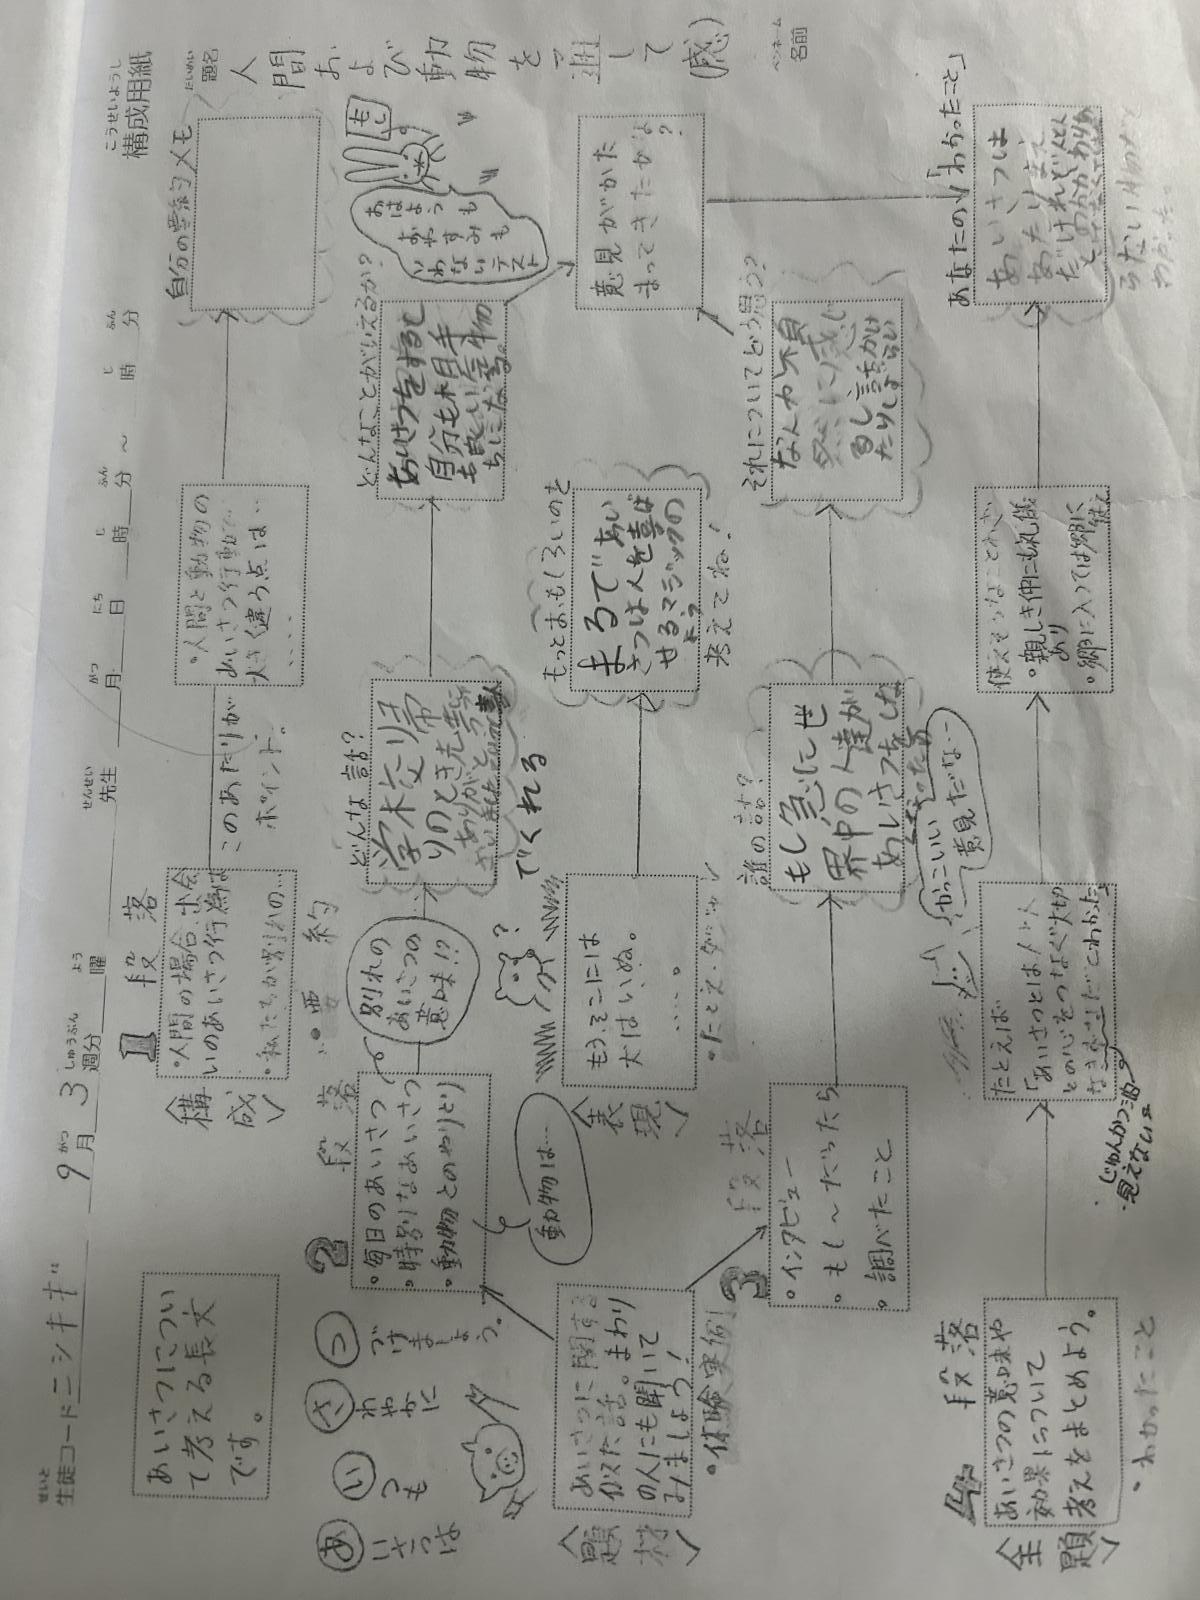 構成用紙
こうせいようし
題名
だいめい
人間および動物を通して(感)
ペンネーム
名前
生徒コード ニシキギ
せいと
9月3週分
がつ
しゅうぶん
曜
よう
先生
せんせい
月
がつ
日
にち
時
じ
分
ふん
～
時
じ
分
ふん
あいさつについ
て考える長文
です。
〈構成〉
1段落
・人間の場合、出会
いのあいさつ行為は
・私たちが別れの…
このあたりが
ポイント。
・人間と動物の
あいさつ行動で
大きく違う点は…
‥‥
自分の要約メモ
・要約
あいさつは
いつも
さわやかに
つづけましょう。
2段落
・毎日のあいさつ
・特別なあいさつ
・動物とのやりとり
別れの
あいさつの
意味!?
動物は…
どんな話?
学校交り帰
りのとき先
でくれる
どんなことがいえるか?
あいさつをすると
自分も相手
も良い
ちになる。
おはようも
おやすみも
いわないテスト
もし。
〈題材〉
あいさつに関する
似た話。まわり
の人にも聞いて
みましょう!
・体験実例
〈表現〉
もうそこには
犬はいぬ。
‥‥。
・たとえ・ダジャレ
?
もっとおもしろいのを
まるであい
さつは人を喜ば
せるマジックの
よう
考えてね!
意見がかた
まってきたかな
?
3段落
・インタビュー
・もし～だったら
・調べたこと
誰の話?
もし急に世
界中の人達が
あいさつをしな
くなったら
かっこいい
意見だな…
それについてどう思う??
なんか不自
然に感じ
るし
たりしょ
あなたの「わかったこと」
あいさつは
あたりまえ
だけれど
4段落
〈主題〉
あいさつの意味や
効果について
考えをまとめよう。
・わかったこと
たとえば
「あいさつとは人と人
との心をつなぐ大切
わかった」
じゅんかつ油
・見えない
使えそうなことわざ
・親しき仲にも礼儀
あり
・郷に入っては郷に
従え